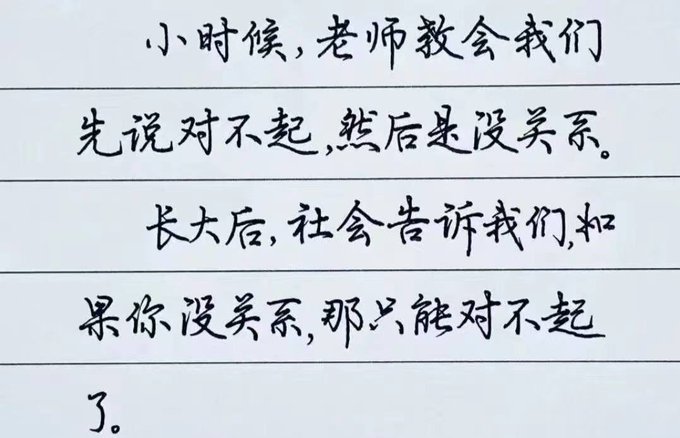 小时候,老师教会我们
先说对不起,然后是没关系。
长大后,社会告诉我们,如
果你没关系,那只能对不起
了。